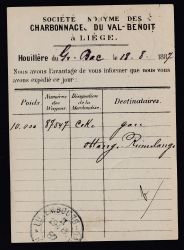 SOCIÉTÉ ANONYME DES
CHARBONNAGES DU VAL-BENOIT
à LIÉGE.
Houillère du Gd Bac le 18.8.1887
Nous avons l'avantage de vous informer que nous vous
avons expédié ce jour:
Poids Numéros des Wagons Désignation de la Marchandise. Destinataires.
10,000 87847 Coke gare
Ottange Rumelange